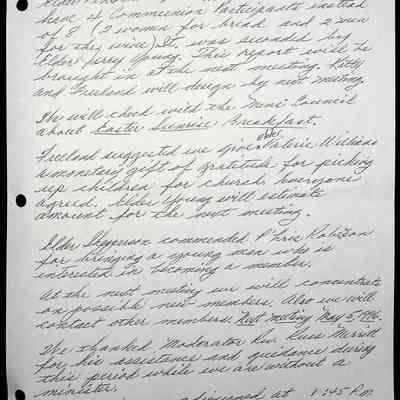 have 4 Communion Participants instead
of 8 (2 women for bread and 2 men
for the wine) It was seconded by
Elder Jerry Young. This report will be
brought in at the next meeting. Kitty
and Freeland will design by next meeting.
He will check with the Mens' Council
about Easter Sunrise Breakfast.
Freeland suggested we give elder Valerie Williams
a monetary gift of gratitude for picking
up children for church. Everyone
agreed. Elder Young will estimate
amount for the next meeting.
Elder commended Chris
for bringing a young man who is
interested in becoming a member.
At the next meeting we will concentrate
on possible new members. Also we will
contact other members. Next meeting May 5, 1986.
We thanked Moderator Rev. Russ Merritt
for his assistance and guidance during
this period while we are without a
minister.
adjourned at 8:45 P.m.